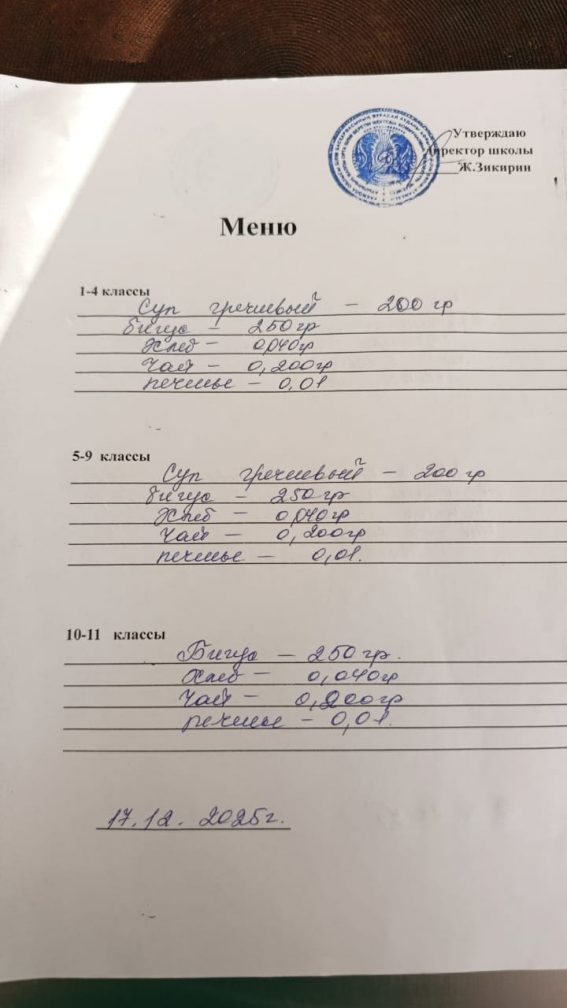 Утверждаю
Директор школы
Ж.Зикирин
Меню
1-4 классы
Суп гречневый – 200 гр
бигус – 250 гр
Хлеб – 0,040гр
Чай – 0,200гр
печенье – 0,01
5-9 классы
Суп гречневый – 200 гр
бигус – 250 гр
Хлеб – 0,040гр
Чай – 0,200гр
печенье – 0,01.
10-11 классы
Бигус – 250 гр.
Хлеб – 0,040гр
Чай – 0,200гр
печенье – 0,01.
17.12. 2025г.